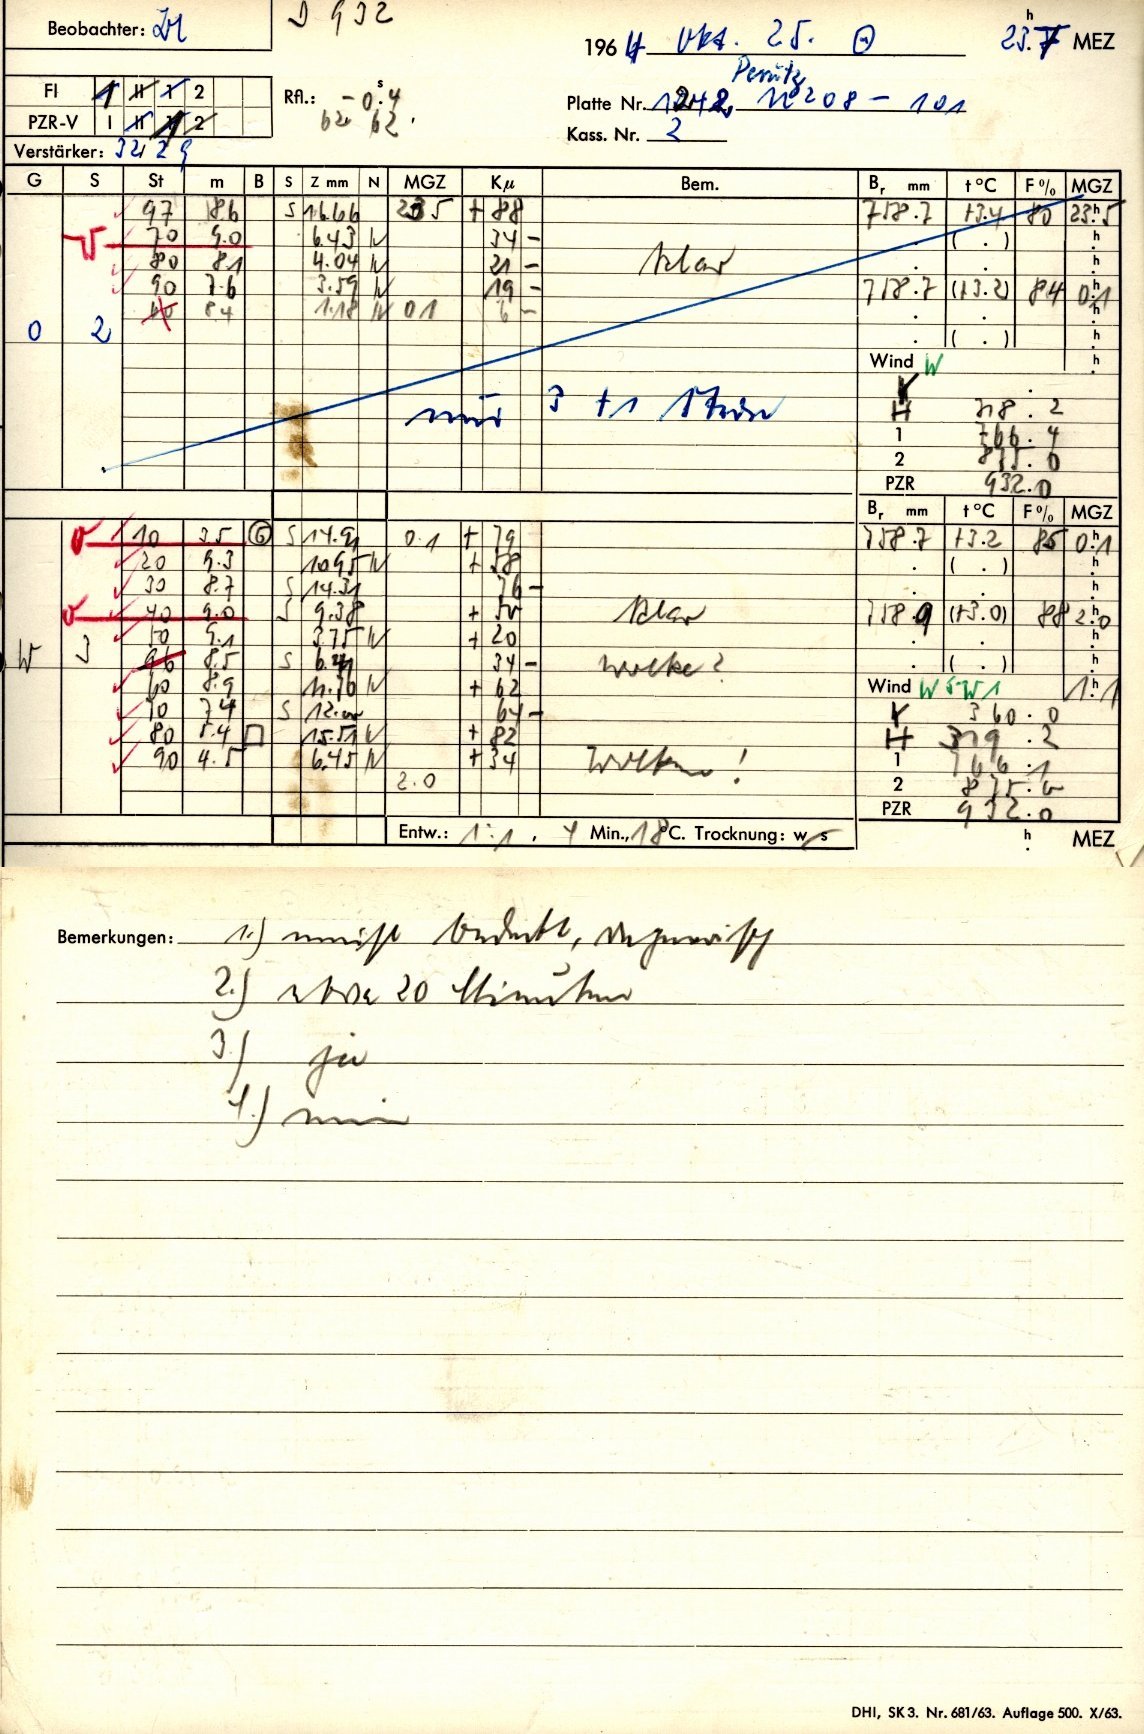 Beobachter:
D 932
1964 Okt. 25. 23.7 MEZ
FI 1 II 1 2
Rfl.: - 0.4
PZR-V I II 1 2
62. 62.
Perutz
Platte Nr. 1242, 11208 - 101
Kass. Nr. 2
Verstärker: 32 29
G S St m B S Z mm N MGZ Kµ Bem. Br mm t °C F % MGZ
97 8.6 S 16.66 23 5 + 88 758.7 +3.4 80 23.5
70 9.0 6.43 N 34 -
80 8.1 4.04 N 21 - klar
90 7.6 3.59 N 19 - 758.7 (+3.2) 84 0.1
8.4 1.18 N 0 1 6 -
0 2
Wind W
nur 3 + 1 Sterne
H 318.2
1 766.4
2 875.0
PZR 932.0
Br mm t °C F % MGZ
10 3.5 G S 14.91 0.1 + 79 758.7 +3.2 85 0.1
20 9.3 10.95 N + 58
30 8.7 S 14.31 76 -
40 9.0 S 9.38 + 50 klar 758.9 (+3.0) 88 2.0
50 9.1 3.75 N + 20
W 3 8.5 S 34 - Wolke?
60 8.9 11.70 N + 62 Wind W 5 W 1 1.1
70 7.4 S 12. 64 - Y 360.0
80 5.4 15.51 N + 82 H 319.2
90 4.5 6.45 N + 34 Wolken! 1 766.1
2.0 2 875.0
PZR 932.0
Entw.: 1:1, 4 Min., 18°C. Trocknung: w/s h MEZ
Bemerkungen: 1.) meist bedeckt, regnerisch
2.) etwa 20 Minuten
3.) ja
4.) nein
DHI, SK 3. Nr. 681/63. Auflage 500. X/63.